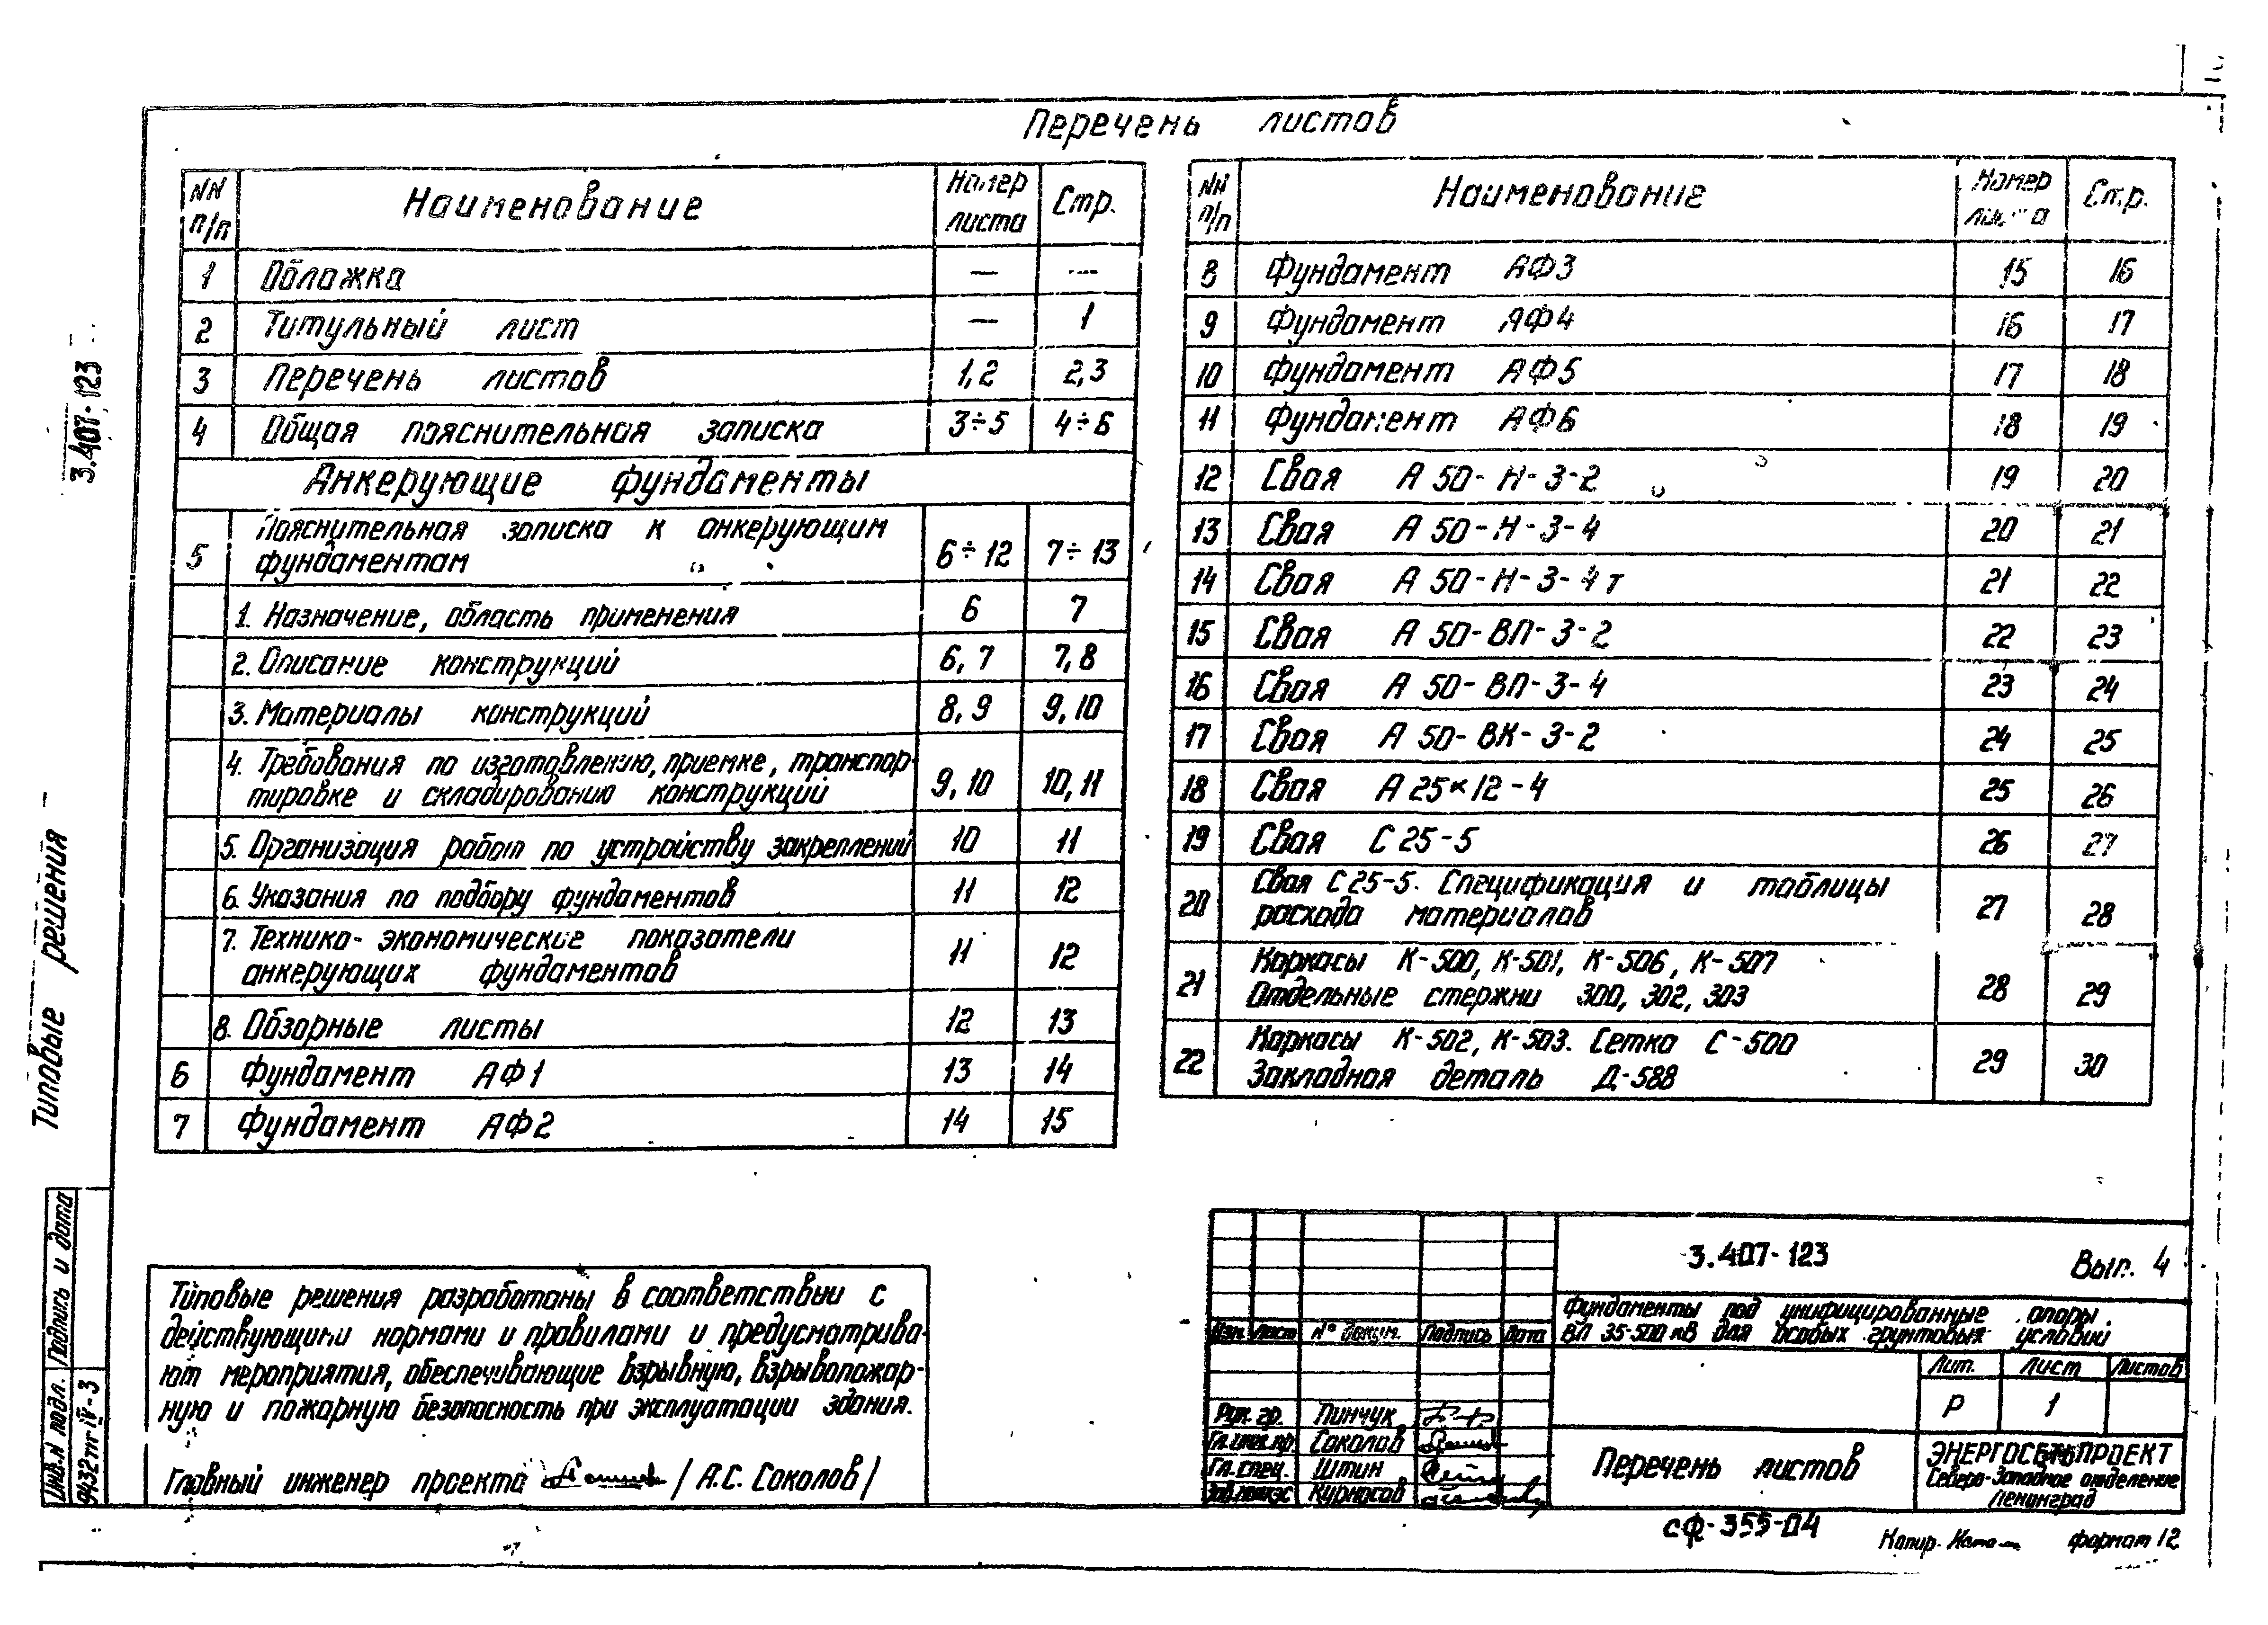 Перечень листов
NN п/п Наименование Номер листа Стр.
1 Обложка — —
2 Титульный лист — 1
3 Перечень листов 1, 2 2, 3
4 Общая пояснительная записка 3÷5 4÷6
Анкерующие фундаменты
5 Пояснительная записка к анкерующим
фундаментам 6÷12 7÷13
1. Назначение, область применения 6 7
2. Описание конструкций 6, 7 7, 8
3. Материалы конструкций 8, 9 9, 10
4. Требования по изготовлению, приемке, транспор-
тировке и складированию конструкций 9, 10 10, 11
5. Организация работ по устройству закреплений 10 11
6. Указания по подбору фундаментов 11 12
7. Технико-экономические показатели
анкерующих фундаментов 11 12
8. Обзорные листы 12 13
6 Фундамент АФ1 13 14
7 Фундамент АФ2 14 15
NN п/п Наименование Номер листа Стр.
8 Фундамент АФ3 15 16
9 Фундамент АФ4 16 17
10 Фундамент АФ5 17 18
11 Фундамент АФ6 18 19
12 Свая А 50-Н-3-2 19 20
13 Свая А 50-Н-3-4 20 21
14 Свая А 50-Н-3-4т 21 22
15 Свая А 50-ВП-3-2 22 23
16 Свая А 50-ВП-3-4 23 24
17 Свая А 50-ВК-3-2 24 25
18 Свая А 25×12-4 25 26
19 Свая С 25-5 26 27
20 Свая С 25-5. Спецификация и таблицы
расхода материалов 27 28
21 Каркасы К-500, К-501, К-506, К-507
Отдельные стержни 300, 302, 303 28 29
22 Каркасы К-502, К-503. Сетка С-500
Закладная деталь Д-588 29 30
3.407-123
Типовые решения
Подпись и дата
Инв.N подл.
9432тг-IV-3
Типовые решения разработаны в соответствии с
действующими нормами и правилами и предусматрива-
ют мероприятия, обеспечивающие взрывную, взрывопожар-
ную и пожарную безопасность при эксплуатации здания.
Главный инженер проекта / А.С. Соколов /
3.407-123 Вып. 4
Фундаменты под унифицированные опоры
ВЛ 35-500 кВ для особых грунтовых условий
Изм. Лист № докум. Подпись Дата
Лит. Лист Листов
Р 1
Рук. гр. Пинчук
Гл.инж.пр Соколов
Гл.спец. Штин
Курносов
Перечень листов
ЭНЕРГОСЕТЬПРОЕКТ
Северо-Западное отделение
Ленинград
СФ-355-04
Копир. формат 12